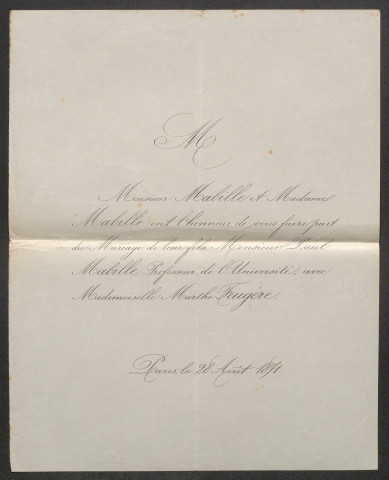 M
Monsieur Mabille et Madame
Mabille ont l'honneur de vous faire part
du Mariage de leur fils, Monsieur Paul
Mabille, Professeur de l'Université, avec
Mademoiselle Marthe Feugère.
Paris, le 28 Août